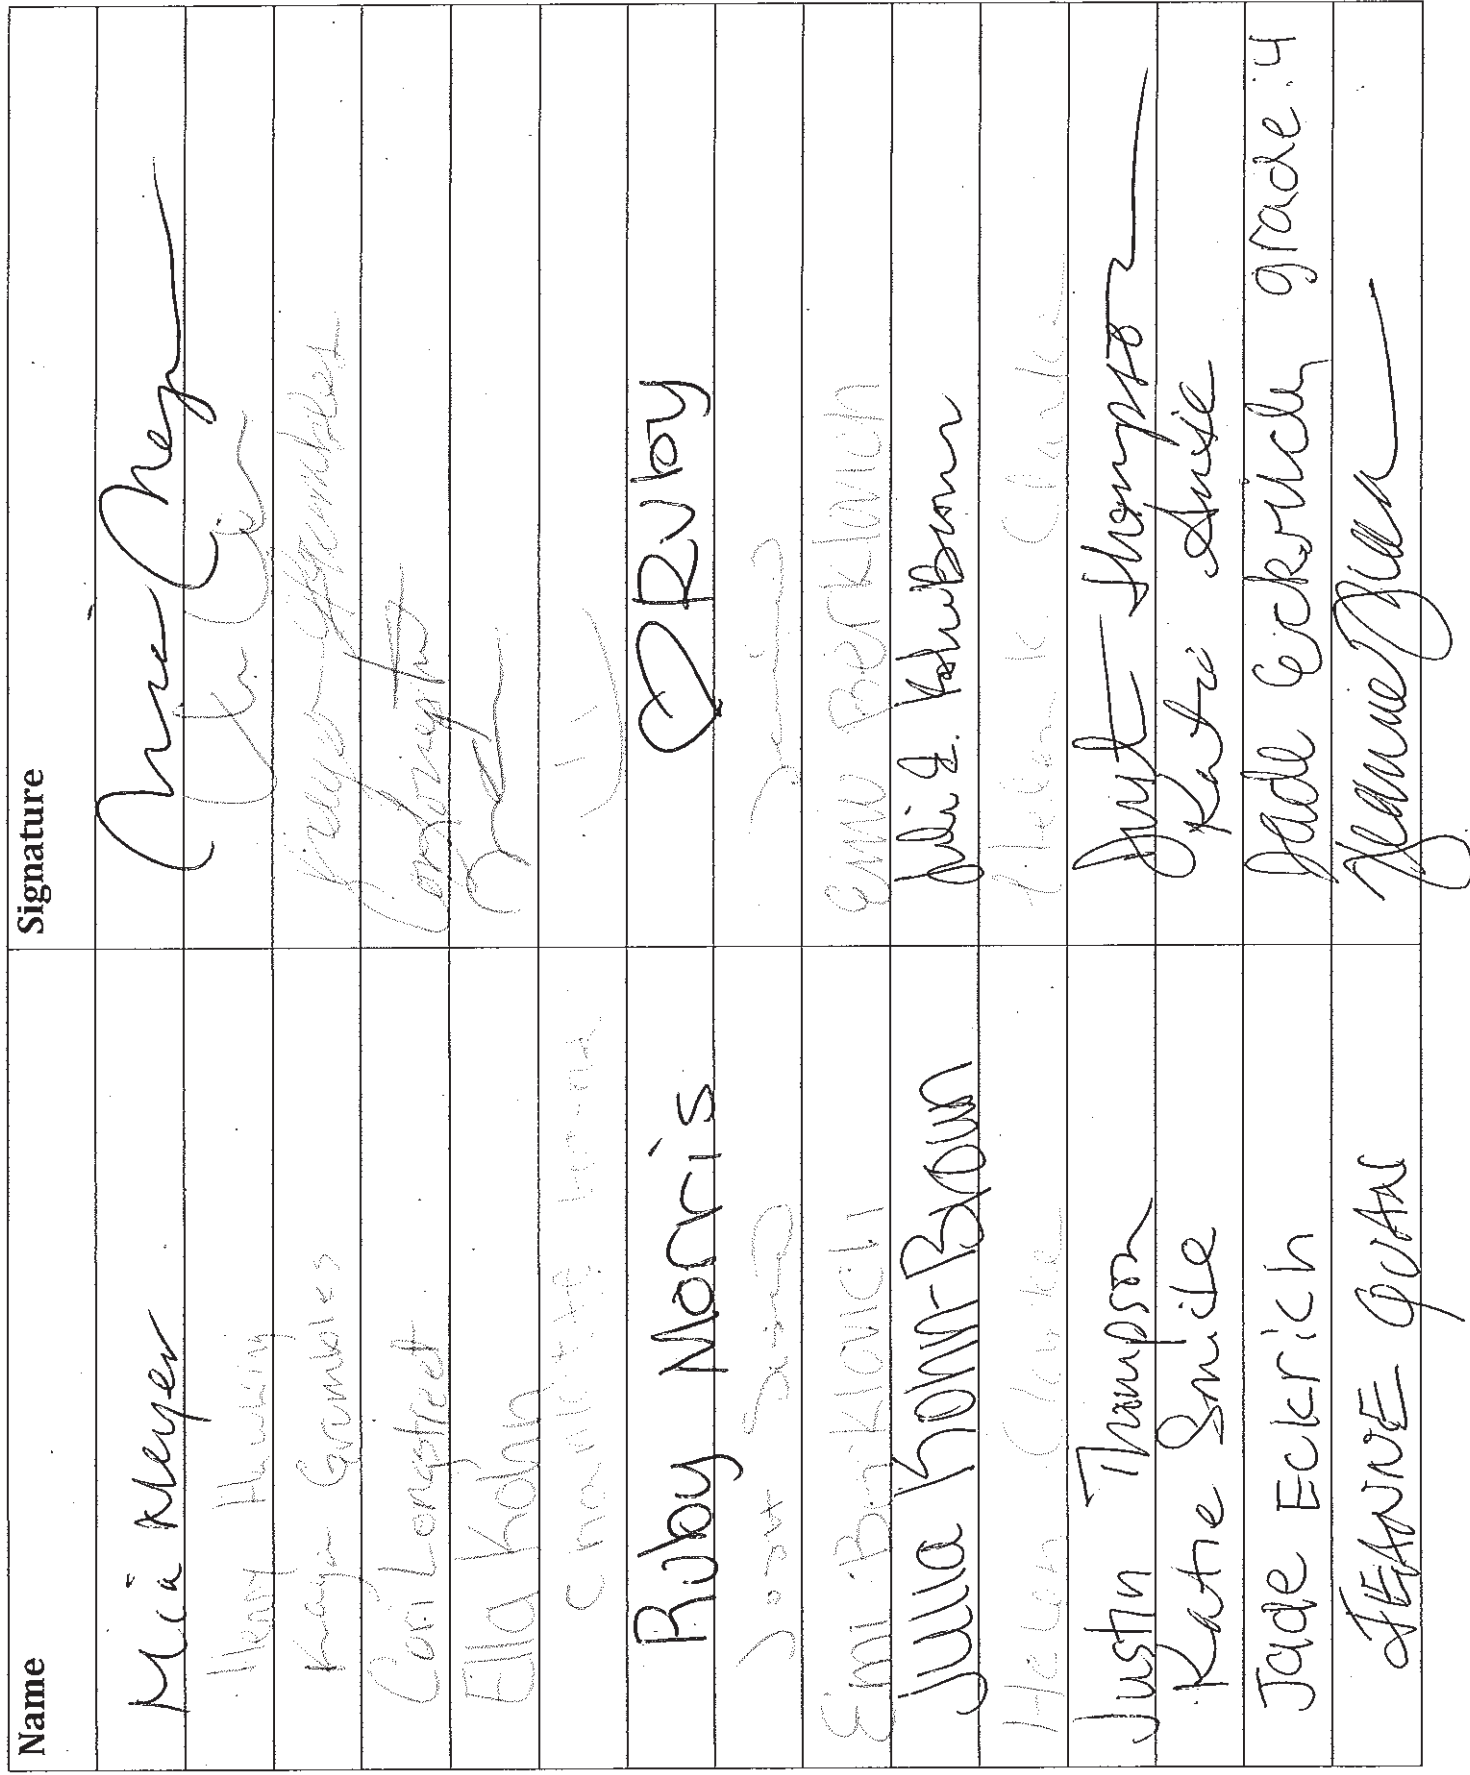 Name Signature
Mia Meyer Mia Meyer
Henry
Kaya Grumbles Kaya Grumbles
Cori Longstreet
Ella Kohn
Charlotte
Ruby Morris ♡ Ruby
Emi Berklovich Emi Berklovich
Julia Kohn-Brown Julia E. Kohn-Brown
Helen Clarke Helen K Clarke
Justin Thompson Justin Thompson
Katie Smile Katie Smile
Jade Eckrich Jade Eckrich grade: 4
JEANNE QUAN Jeanne Quan